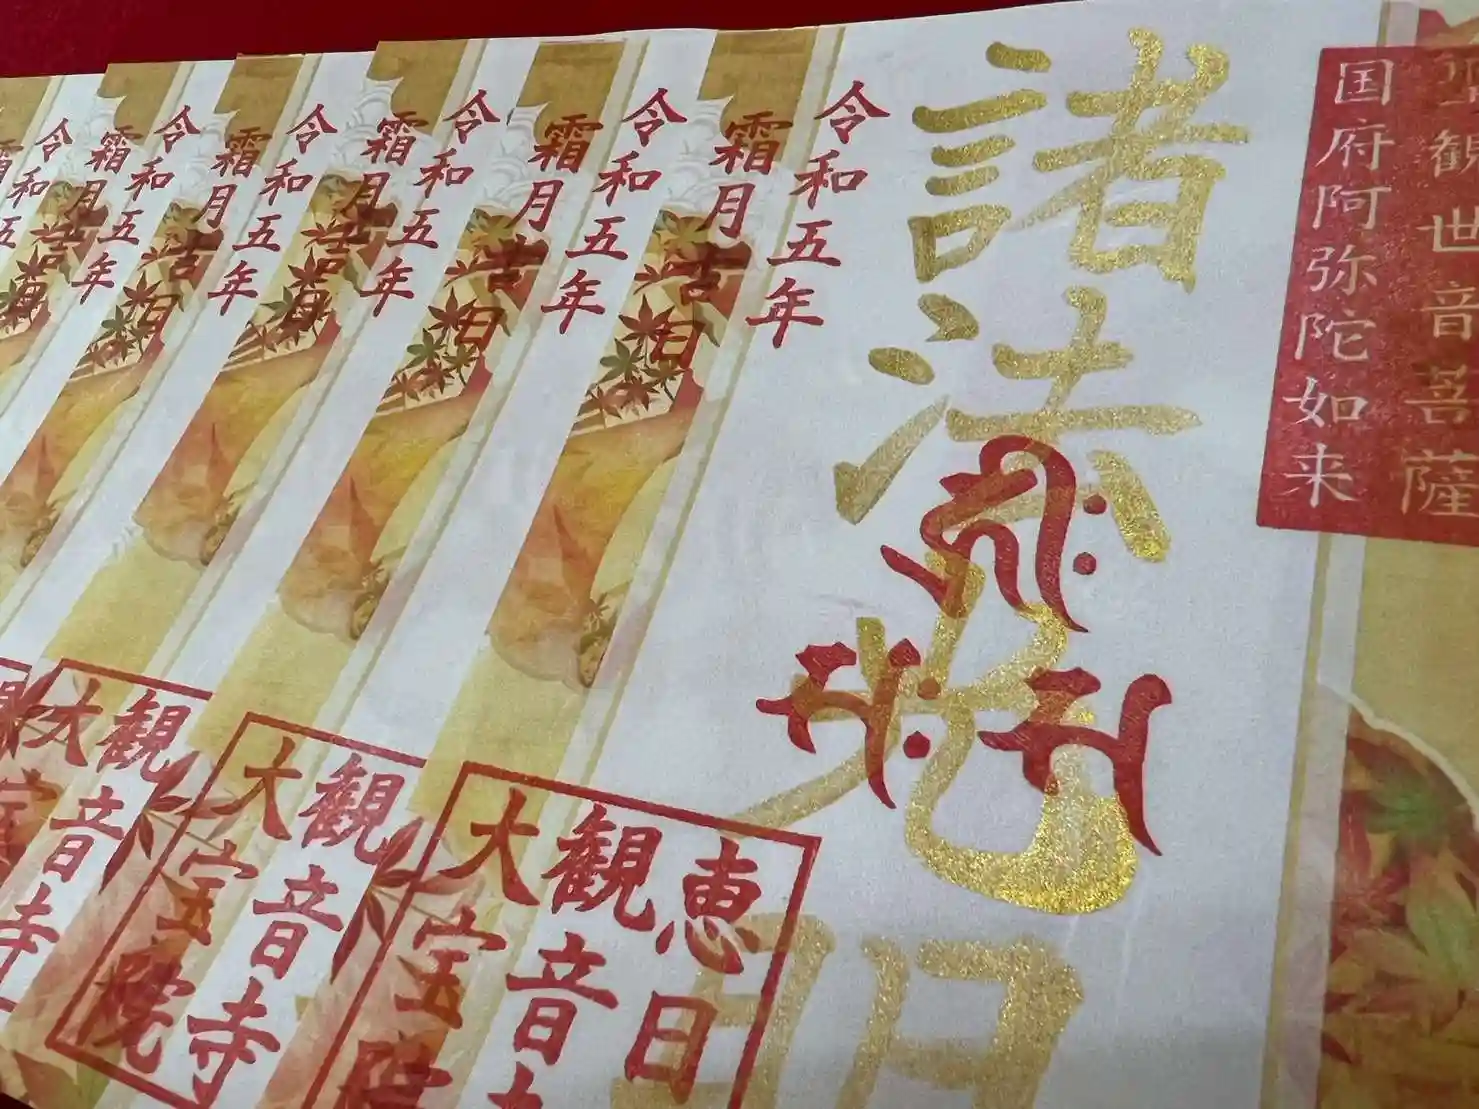 聖観世音菩薩
国府阿弥陀如来
諸法光明
令和五年
霜月吉日
恵日
観音寺
大宝院
令和五年
霜月吉日
観音寺
大宝院
令和五年
霜月吉日
観音寺
大宝院
令和五年
霜月吉日
令和五年
霜月吉日
令和五年
霜月